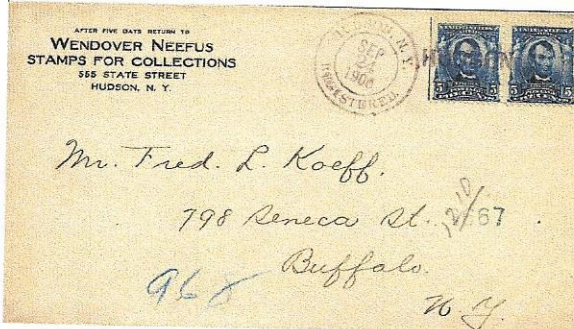 AFTER FIVE DAYS RETURN TO
WENDOVER NEEFUS
STAMPS FOR COLLECTIONS
555 STATE STREET
HUDSON, N. Y.
N. Y.
SEP
24
REGISTERED
5 5
Mr. Fred. L. Koeff.
798 Seneca St.
1210
667
Buffalo.
N. Y.
968